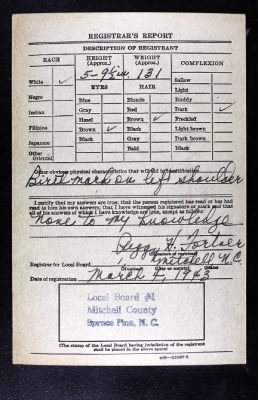 REGISTRAR'S REPORT
DESCRIPTION OF REGISTRANT
RACE HEIGHT (Approx.) WEIGHT (Approx.) COMPLEXION
5-9½ in. 131
White ✓ EYES HAIR Sallow
Light
Negro Blue Blonde Ruddy
Gray Red Dark ✓
Indian Hazel Brown ✓ Freckled
Filipino Brown ✓ Black Light brown
Japanese Black Gray Dark brown
Other Bald Black
Oriental
Other obvious physical characteristics that will aid in identification
Birth mark on left shoulder
I certify that my answers are true; that the person registered has read or has had
read to him his own answers; that I have witnessed his signature or mark and that
all of his answers of which I have knowledge are true, except as follows:
None to my knowledge
Peggy H.
(Signature of registrar)
Registrar for Local Board 1 Mitchell N.C.
(Number) (City or county) (State)
Date of registration March 4, 1943
Local Board #1
Mitchell County
Spruce Pine, N. C.
(The stamp of the Local Board having jurisdiction of the registrant
shall be placed in the above space)